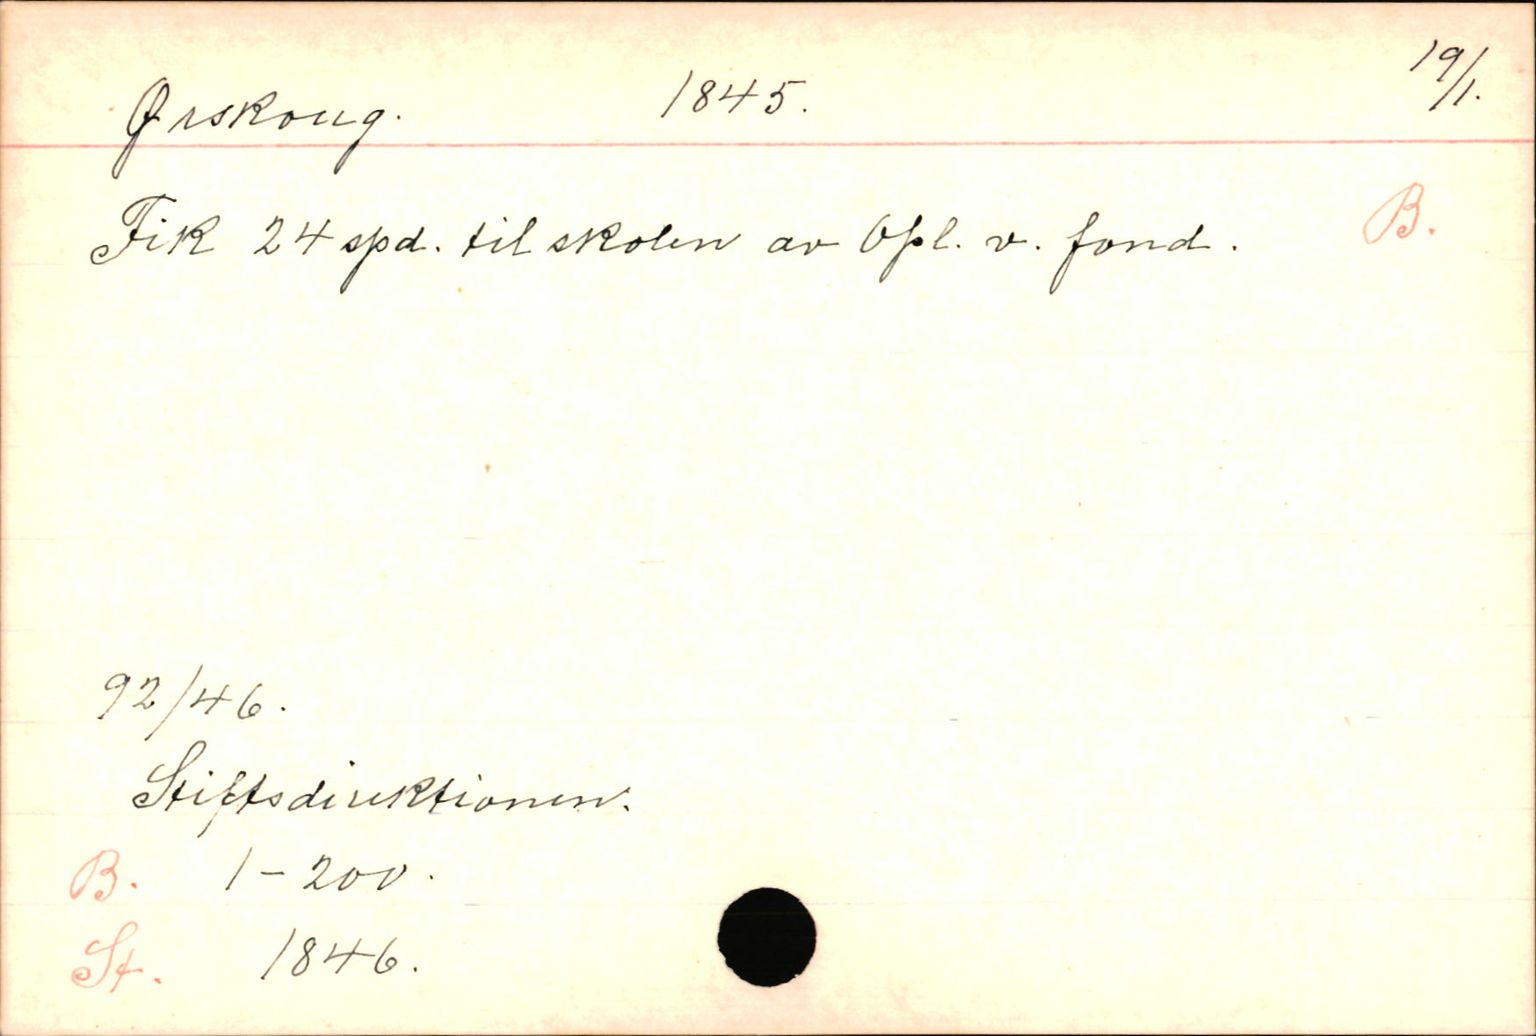 Ørskoug. 1845. 19/1.
Fik 24 spd. til skolen av Opl. v. fond. B.
92/46.
Stiftsdirektionen.
B. 1-200.
St. 1846.